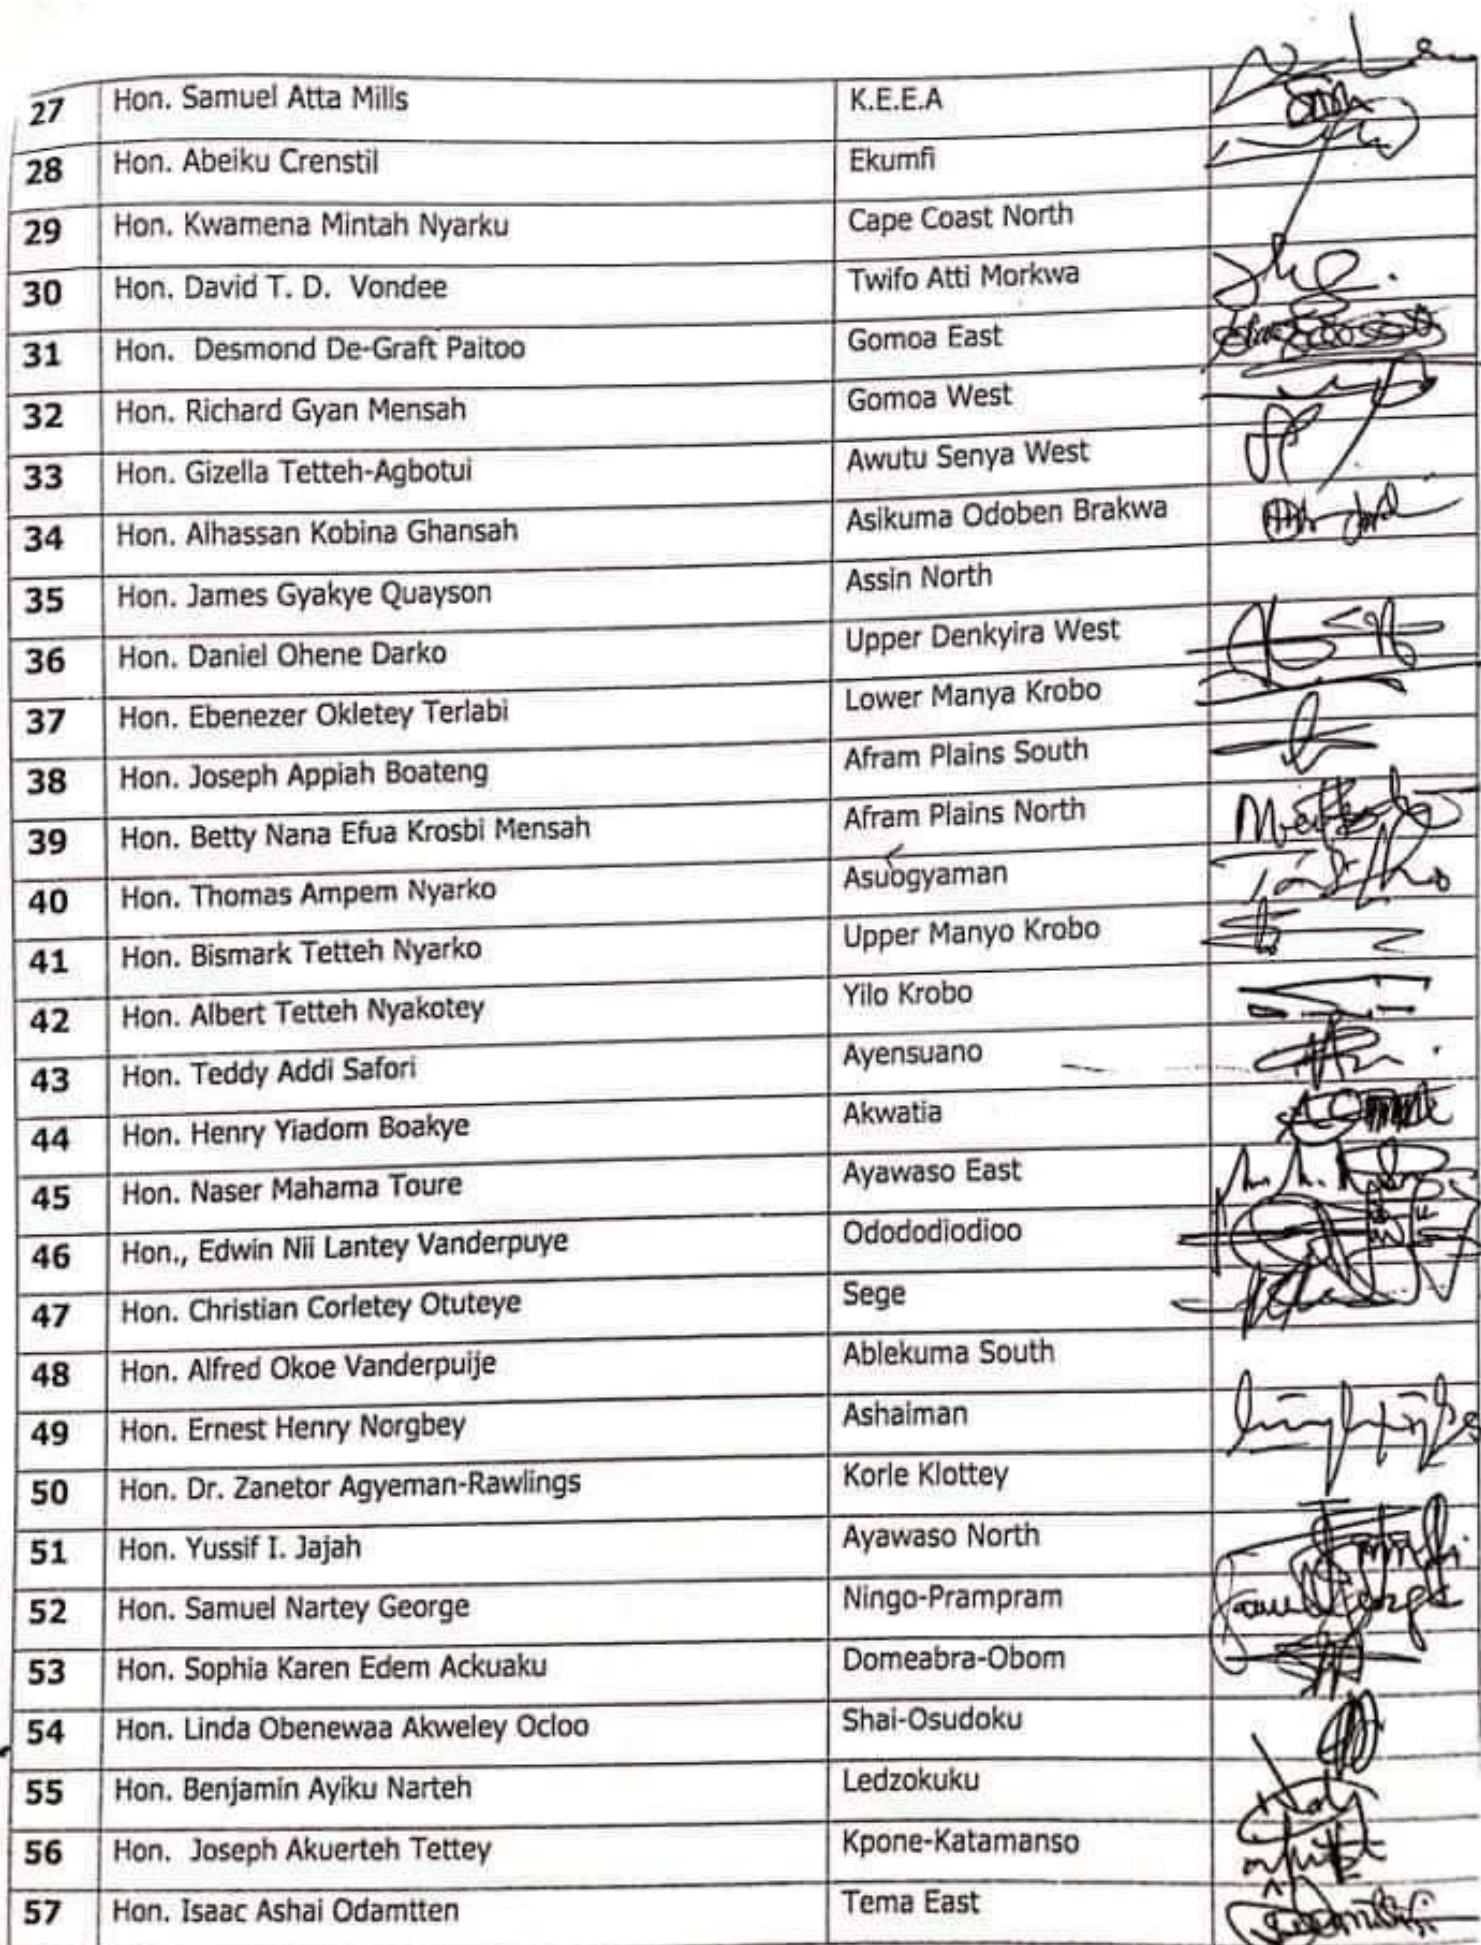 27 Hon. Samuel Atta Mills K.E.E.A
28 Hon. Abeiku Crenstil Ekumfi
29 Hon. Kwamena Mintah Nyarku Cape Coast North
30 Hon. David T. D. Vondee Twifo Atti Morkwa
31 Hon. Desmond De-Graft Paitoo Gomoa East
32 Hon. Richard Gyan Mensah Gomoa West
33 Hon. Gizella Tetteh-Agbotui Awutu Senya West
34 Hon. Alhassan Kobina Ghansah Asikuma Odoben Brakwa
35 Hon. James Gyakye Quayson Assin North
36 Hon. Daniel Ohene Darko Upper Denkyira West
37 Hon. Ebenezer Okletey Terlabi Lower Manya Krobo
38 Hon. Joseph Appiah Boateng Afram Plains South
39 Hon. Betty Nana Efua Krosbi Mensah Afram Plains North
40 Hon. Thomas Ampem Nyarko Asuogyaman
41 Hon. Bismark Tetteh Nyarko Upper Manyo Krobo
42 Hon. Albert Tetteh Nyakotey Yilo Krobo
43 Hon. Teddy Addi Safori Ayensuano
44 Hon. Henry Yiadom Boakye Akwatia
45 Hon. Naser Mahama Toure Ayawaso East
46 Hon., Edwin Nii Lantey Vanderpuye Odododiodioo
47 Hon. Christian Corletey Otuteye Sege
48 Hon. Alfred Okoe Vanderpuije Ablekuma South
49 Hon. Ernest Henry Norgbey Ashaiman
50 Hon. Dr. Zanetor Agyeman-Rawlings Korle Klottey
51 Hon. Yussif I. Jajah Ayawaso North
52 Hon. Samuel Nartey George Ningo-Prampram
53 Hon. Sophia Karen Edem Ackuaku Domeabra-Obom
54 Hon. Linda Obenewaa Akweley Ocloo Shai-Osudoku
55 Hon. Benjamin Ayiku Narteh Ledzokuku
56 Hon. Joseph Akuerteh Tettey Kpone-Katamanso
57 Hon. Isaac Ashai Odamtten Tema East